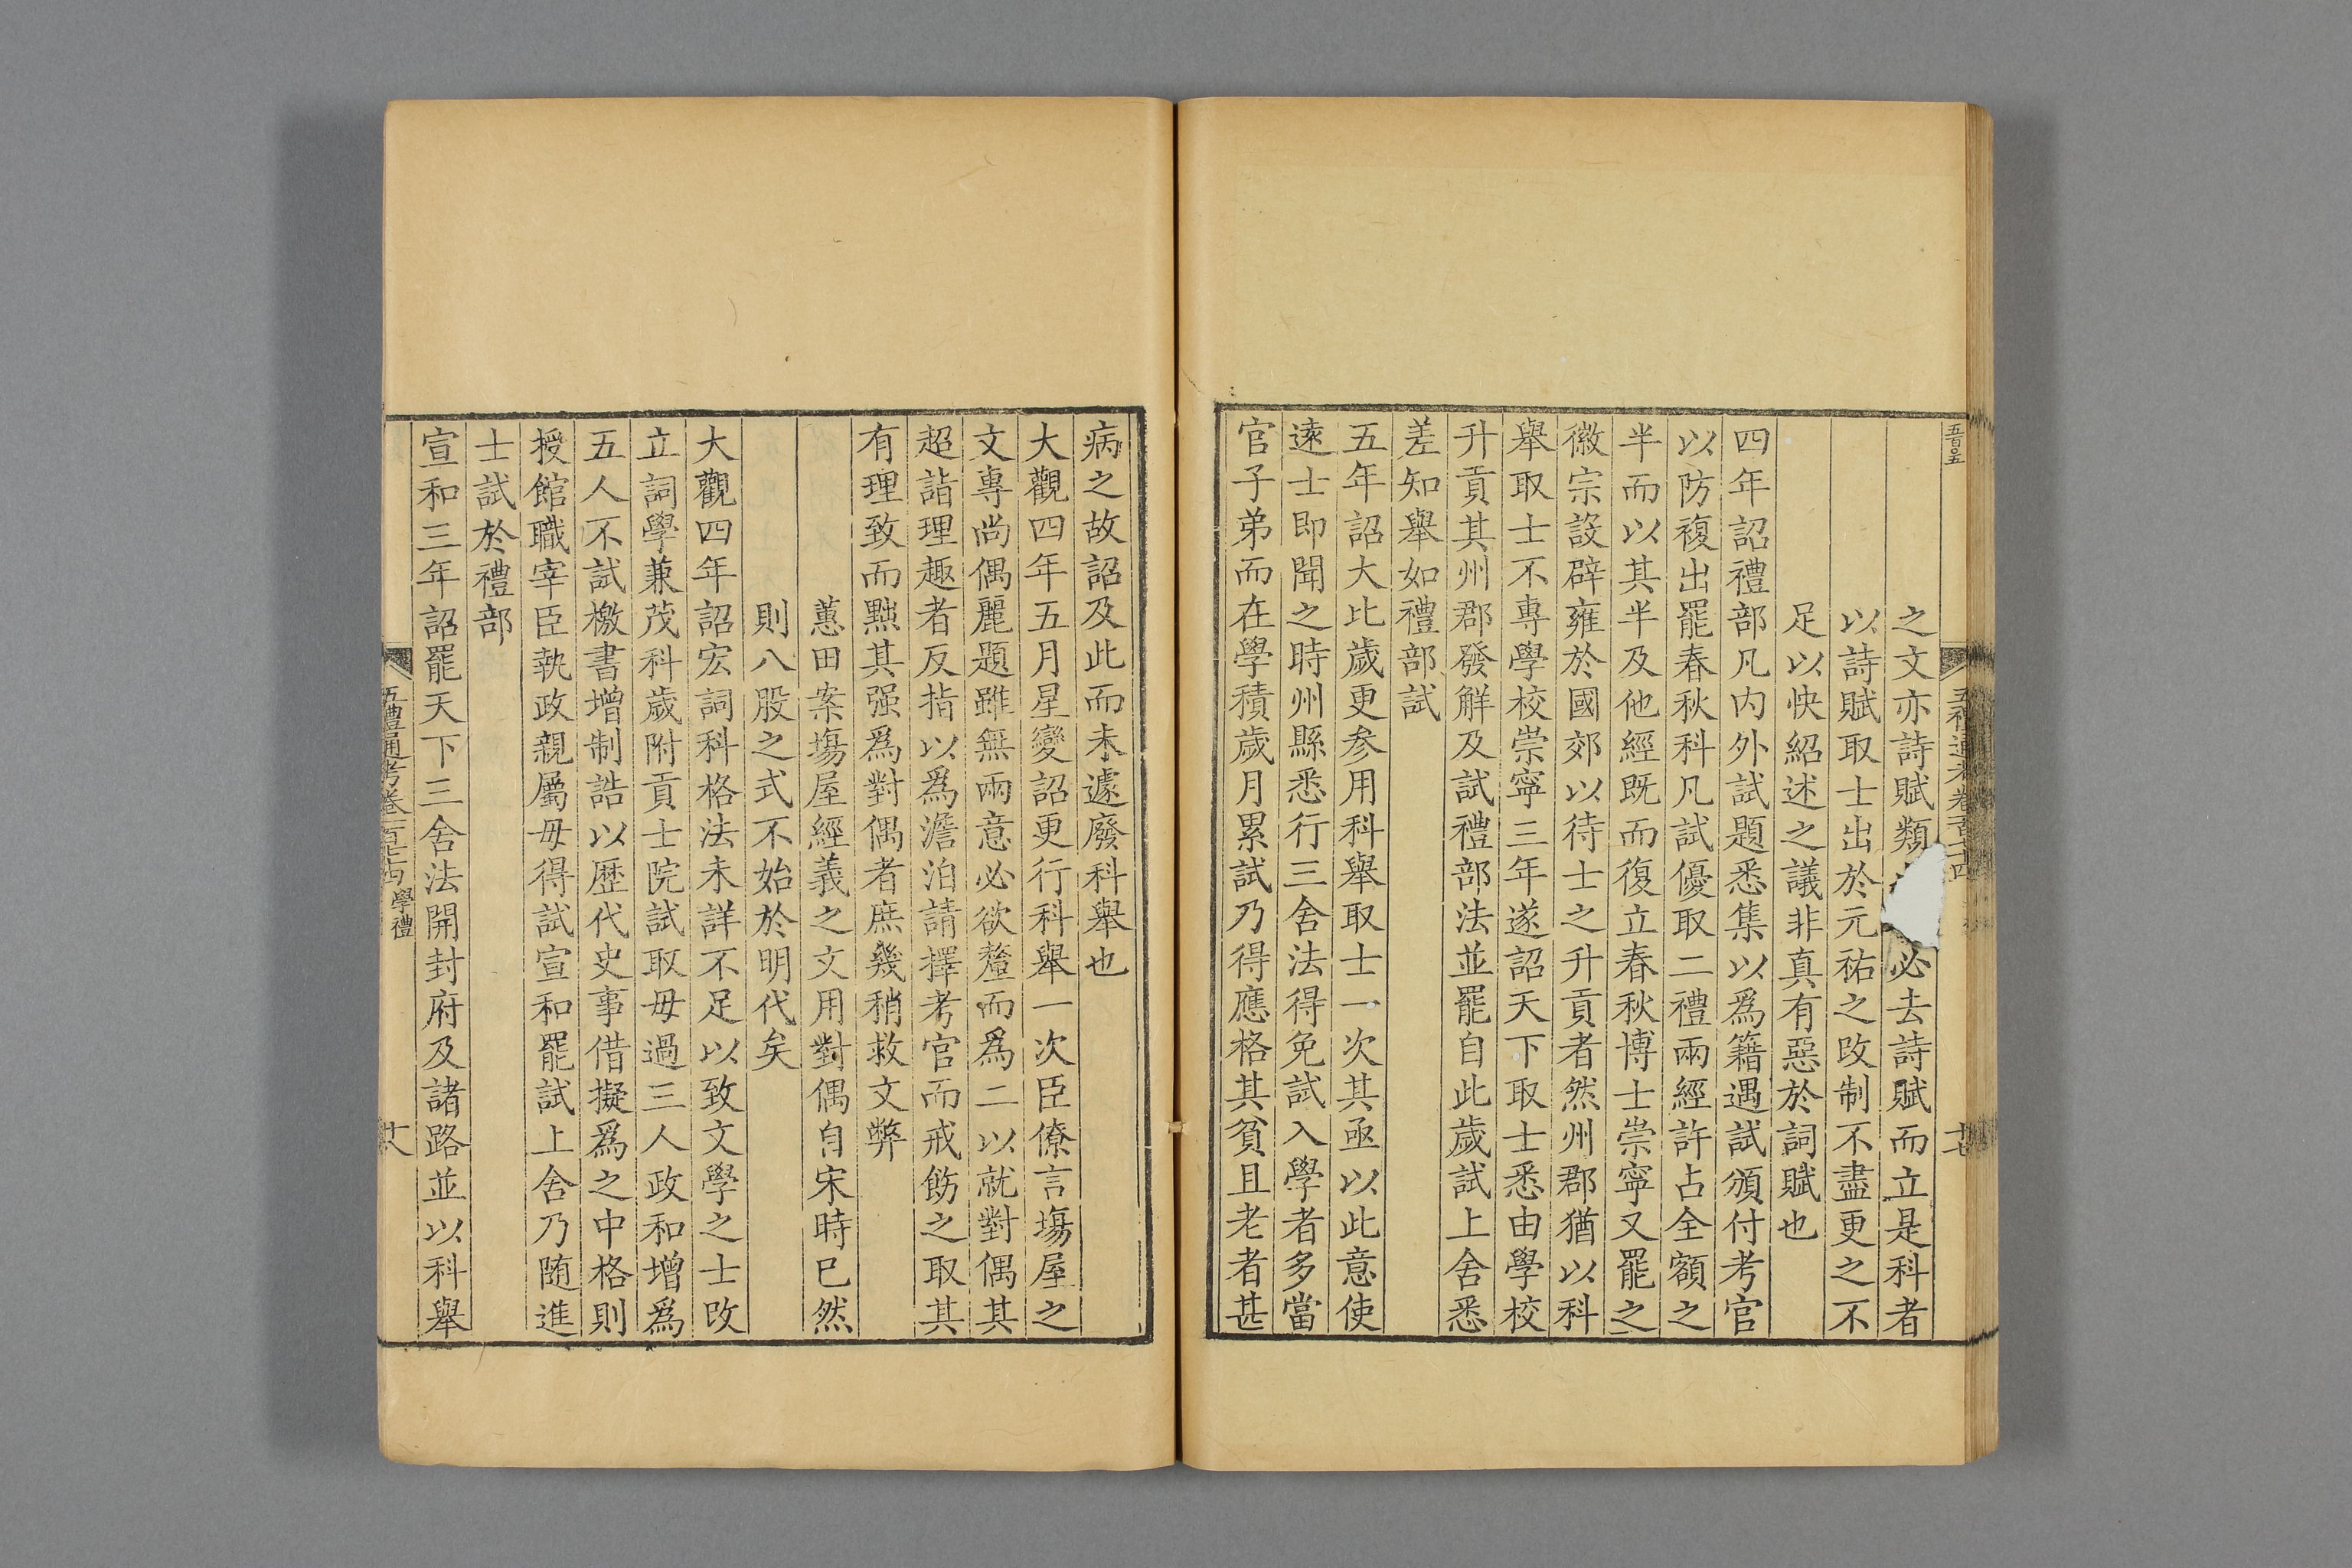 五百五
五禮通考卷一百七十四
十七
之文亦詩賦類必去詩賦而立是科者
以詩賦取士出於元祐之改制不盡更之不
足以快紹述之議非真有惡於詞賦也
四年詔禮部凡内外試題悉集以爲籍遇試頒付考官
以防複出罷春秋科凡試優取二禮兩經許占全額之
半而以其半及他經既而復立春秋博士崇寧又罷之
徽宗設辟雍於國郊以待士之升貢者然州郡猶以科
舉取士不專學校崇寧三年遂詔天下取士悉由學校
升貢其州郡發解及試禮部法並罷自此歲試上舍悉
差知舉如禮部試
五年詔大比歲更參用科舉取士一次其亟以此意使
遠士即聞之時州縣悉行三舍法得免試入學者多當
官子弟而在學積歲月累試乃得應格其貧且老者甚
病之故詔及此而未遽廢科舉也
大觀四年五月星變詔更行科舉一次臣僚言塲屋之
文專尚偶麗題雖無兩意必欲釐而爲二以就對偶其
超詣理趣者反指以爲澹泊請擇考官而戒飭之取其
有理致而黜其强爲對偶者庶幾稍救文弊
蕙田案塲屋經義之文用對偶自宋時已然
則八股之式不始於明代矣
大觀四年詔宏詞科格法未詳不足以致文學之士改
立詞學兼茂科歲附貢士院試取毋過三人政和增爲
五人不試檄書增制誥以歷代史事借擬爲之中格則
授館職宰臣執政親屬毋得試宣和罷試上舍乃随進
士試於禮部
宣和三年詔罷天下三舍法開封府及諸路並以科舉
五禮通考卷一百七十四 學禮
十八